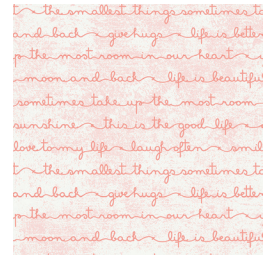 the smallest things sometimes
and back give hugs life is better
up the most room in our heart
moon and back life is beautiful
sometimes take up the most room
sunshine this is the good life
love to my life laugh often
the smallest things sometimes
and back give hugs life is better
up the most room in our heart
moon and back life is beautiful